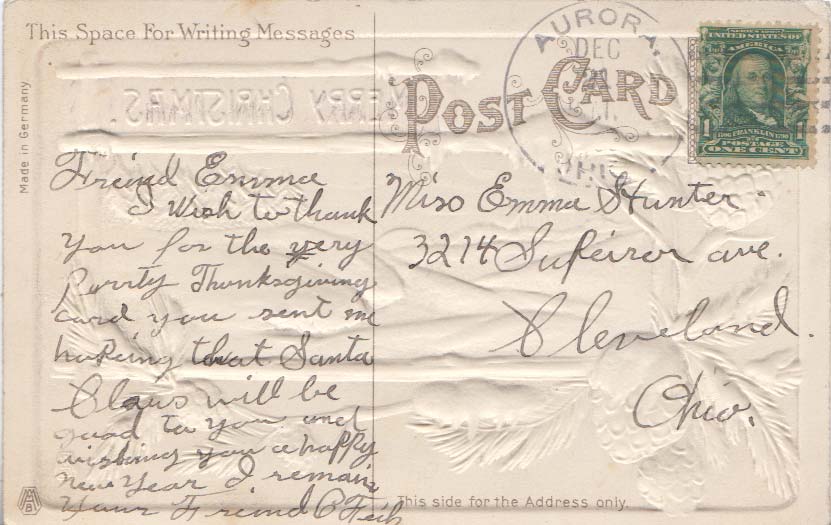 This Space For Writing Messages
POST CARD
AURORA,
DEC
OHIO
SERIES 1902
UNITED STATES OF
AMERICA
1 1706 FRANKLIN 1790 1
POSTAGE
ONE CENT
MERRY CHRISTMAS.
Made in Germany
Freind Emma
I Wish to thank
You for the very
Purrty Thanksgiving
card you sent me
hoping that Santa
Claus will be
good to you and
wishing you a happy
New Year I remain
Your Freind C
Miss Emma Hunter.
3214 Supeiror ave.
Cleveland.
Ohio.
This side for the Address only.